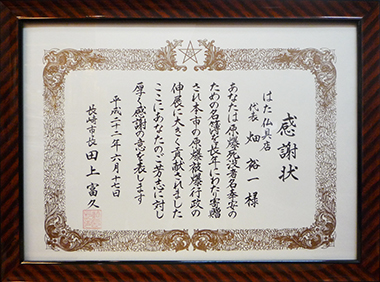 感謝状
はた仏具店
代表 畑 裕一 様
あなたは原爆死没者名奉安の
ための名簿を長年にわたり寄贈
され本市の原爆被爆行政の
伸展に大きく貢献されました
ここにあなたのご芳志に対し
厚く感謝の意を表します
平成二十二年六月十七日
長崎市長 田上富久